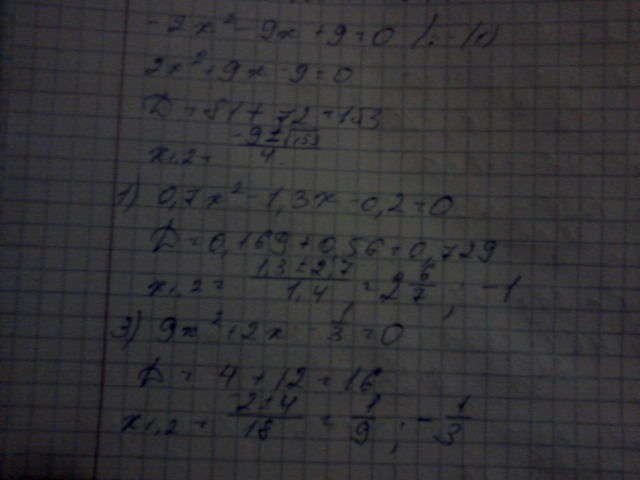 -2x² - 9x + 9 = 0 |: (-1)
2x² + 9x - 9 = 0
D = 81 + 72 = 153
x₁,₂ = (-9 ± √153)/4
1) 0,7x² - 1,3x - 0,2 = 0
D = 0,169 + 0,56 = 0,729
x₁,₂ = (1,3 ± 2,7)/1,4 = 2 6/7 ; -1
3) 9x² + 2x - 1/3 = 0
D = 4 + 12 = 16
x₁,₂ = (2 ± 4)/18 = 1/9 ; -1/3